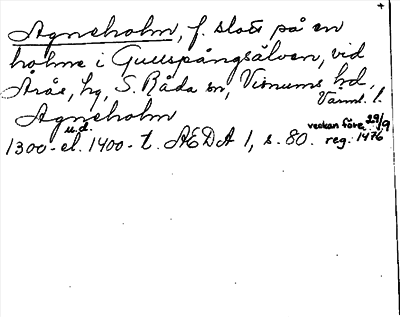 Agneholm, f. slott på en
holme i Gullspångsälven, vid
Årås, hg, S. Råda sn, Visnums hd,
Värml. l.
Agneholm
u.d.
1300- el. 1400-t. ÆDA 1, s. 80. veckan före 29/9
reg. 1476